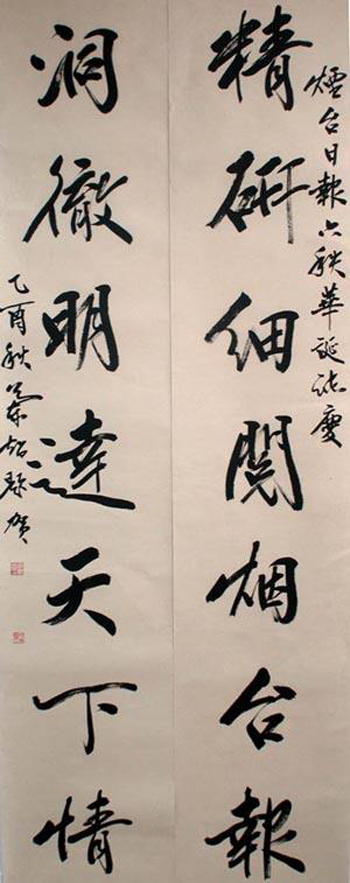 煙台日報六秩華誕誌慶
精研細閱烟台報
洞徹明達天下情
乙酉秋賀